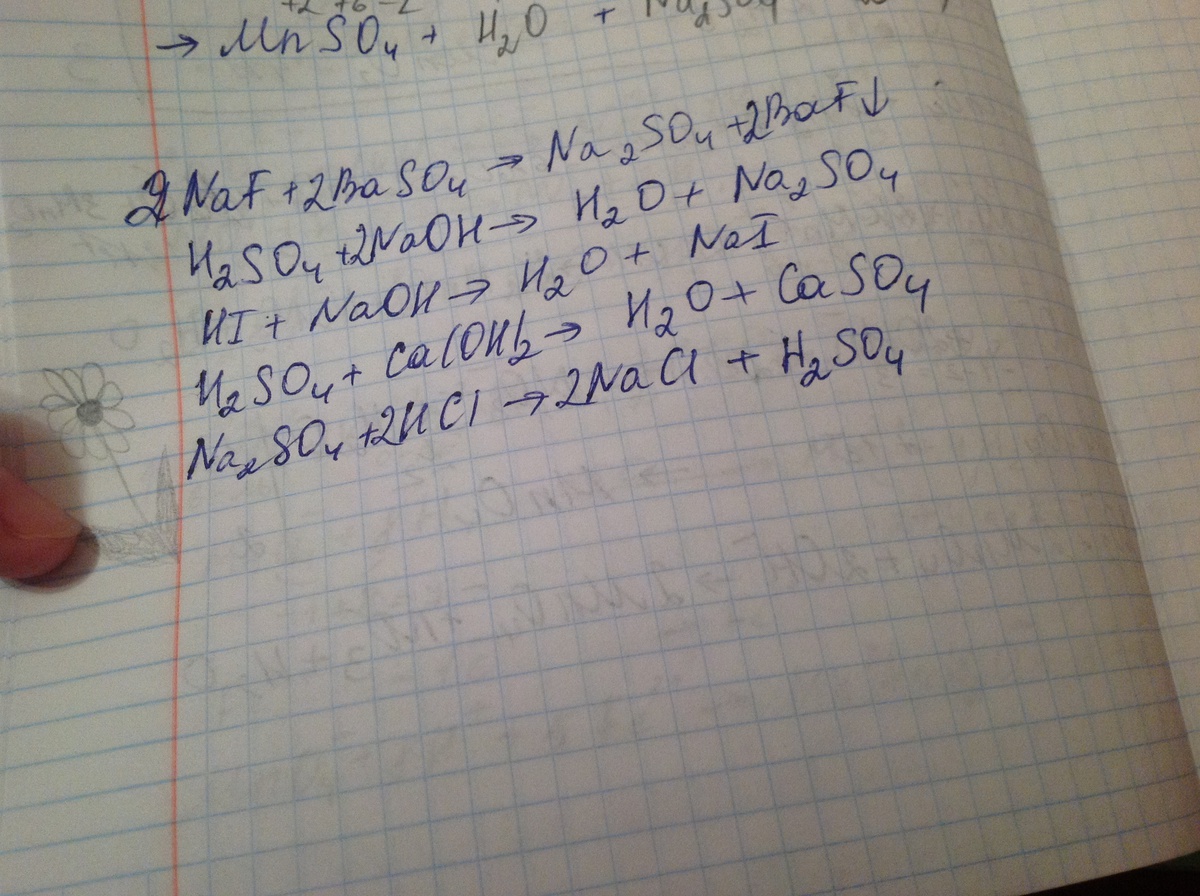 +2 +6 -2
→ MnSO₄ + H₂O + Na₂SO₄
2NaF + 2BaSO₄ → Na₂SO₄ + 2BaF↓
H₂SO₄ + 2NaOH → H₂O + Na₂SO₄
HI + NaOH → H₂O + NaI
H₂SO₄ + Ca(OH)₂ → H₂O + CaSO₄
Na₂SO₄ + 2HCl → 2NaCl + H₂SO₄